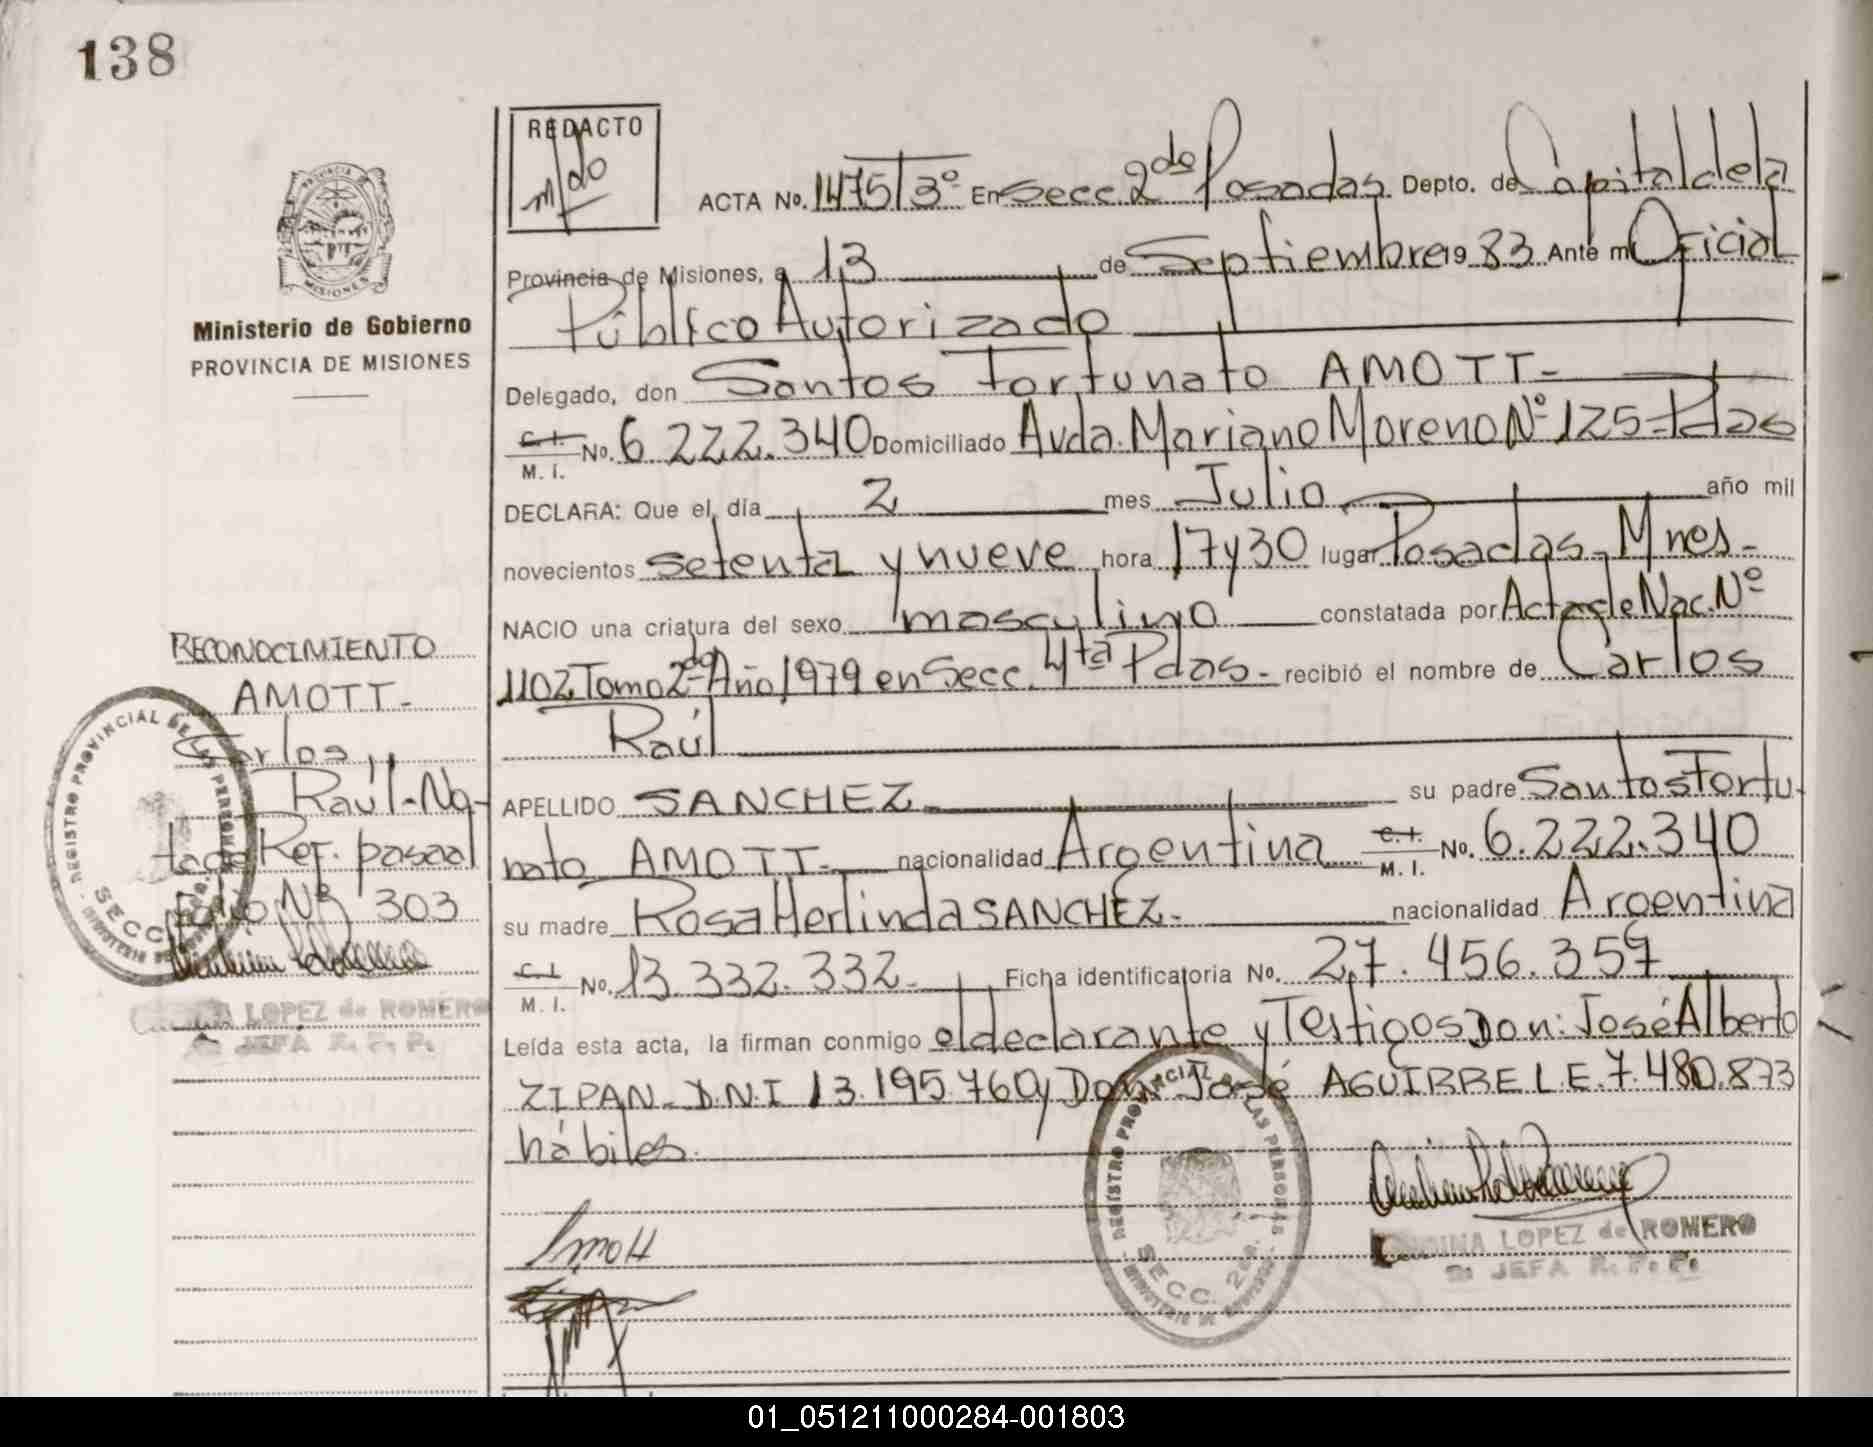 138
REDACTO
m/do
ACTA No. 1475 T 3º En Secc 2do Posadas Depto. de Capital de la
Provincia de Misiones, a 13 de Septiembre 19 83 Ante mi Oficial
Público Autorizado
Delegado, don Santos Fortunato AMOTT-
C. I.
M. I. No. 6.222.340 Domiciliado Avda. Mariano Moreno Nº 125-Pdas
DECLARA: Que el día 2 mes Julio año mil
novecientos setenta y nueve hora 17y30 lugar Posadas, Mnes-
NACIO una criatura del sexo masculino constatada por Acta de Nac. Nº
1102 Tomo 2do Año 1979 en Secc. 4ta Pdas- recibió el nombre de Carlos
Raúl
APELLIDO SANCHEZ su padre Santos Fortu-
nato AMOTT- nacionalidad Argentina C. I.
M. I. No. 6.222.340
su madre Rosa Herlinda SANCHEZ- nacionalidad Argentina
C. I.
M. I. No. 13.332.332- Ficha identificatoria No. 27.456.357
Leída esta acta, la firman conmigo el declarante y Testigos Don: José Alberto
ZIPAN- D.N.I 13.195.760 y Don José AGUIRRE L.E. 7.480.873
hábiles.
Amott
REGISTRO PROVINCIAL DE LAS PERSONAS
SECC. 2da.
MINISTERIO DE GOBIERNO
LOPEZ de ROMERO
JEFA R. P. P.
PROVINCIA DE
MISIONES
Ministerio de Gobierno
PROVINCIA DE MISIONES
RECONOCIMIENTO
AMOTT-
Carlos
Raúl-No-
ta de Ref. pasada al
Folio Nº 303
REGISTRO PROVINCIAL DE LAS PERSONAS
SECC
LOPEZ de ROMERO
JEFA R. P. P.
01_051211000284-001803